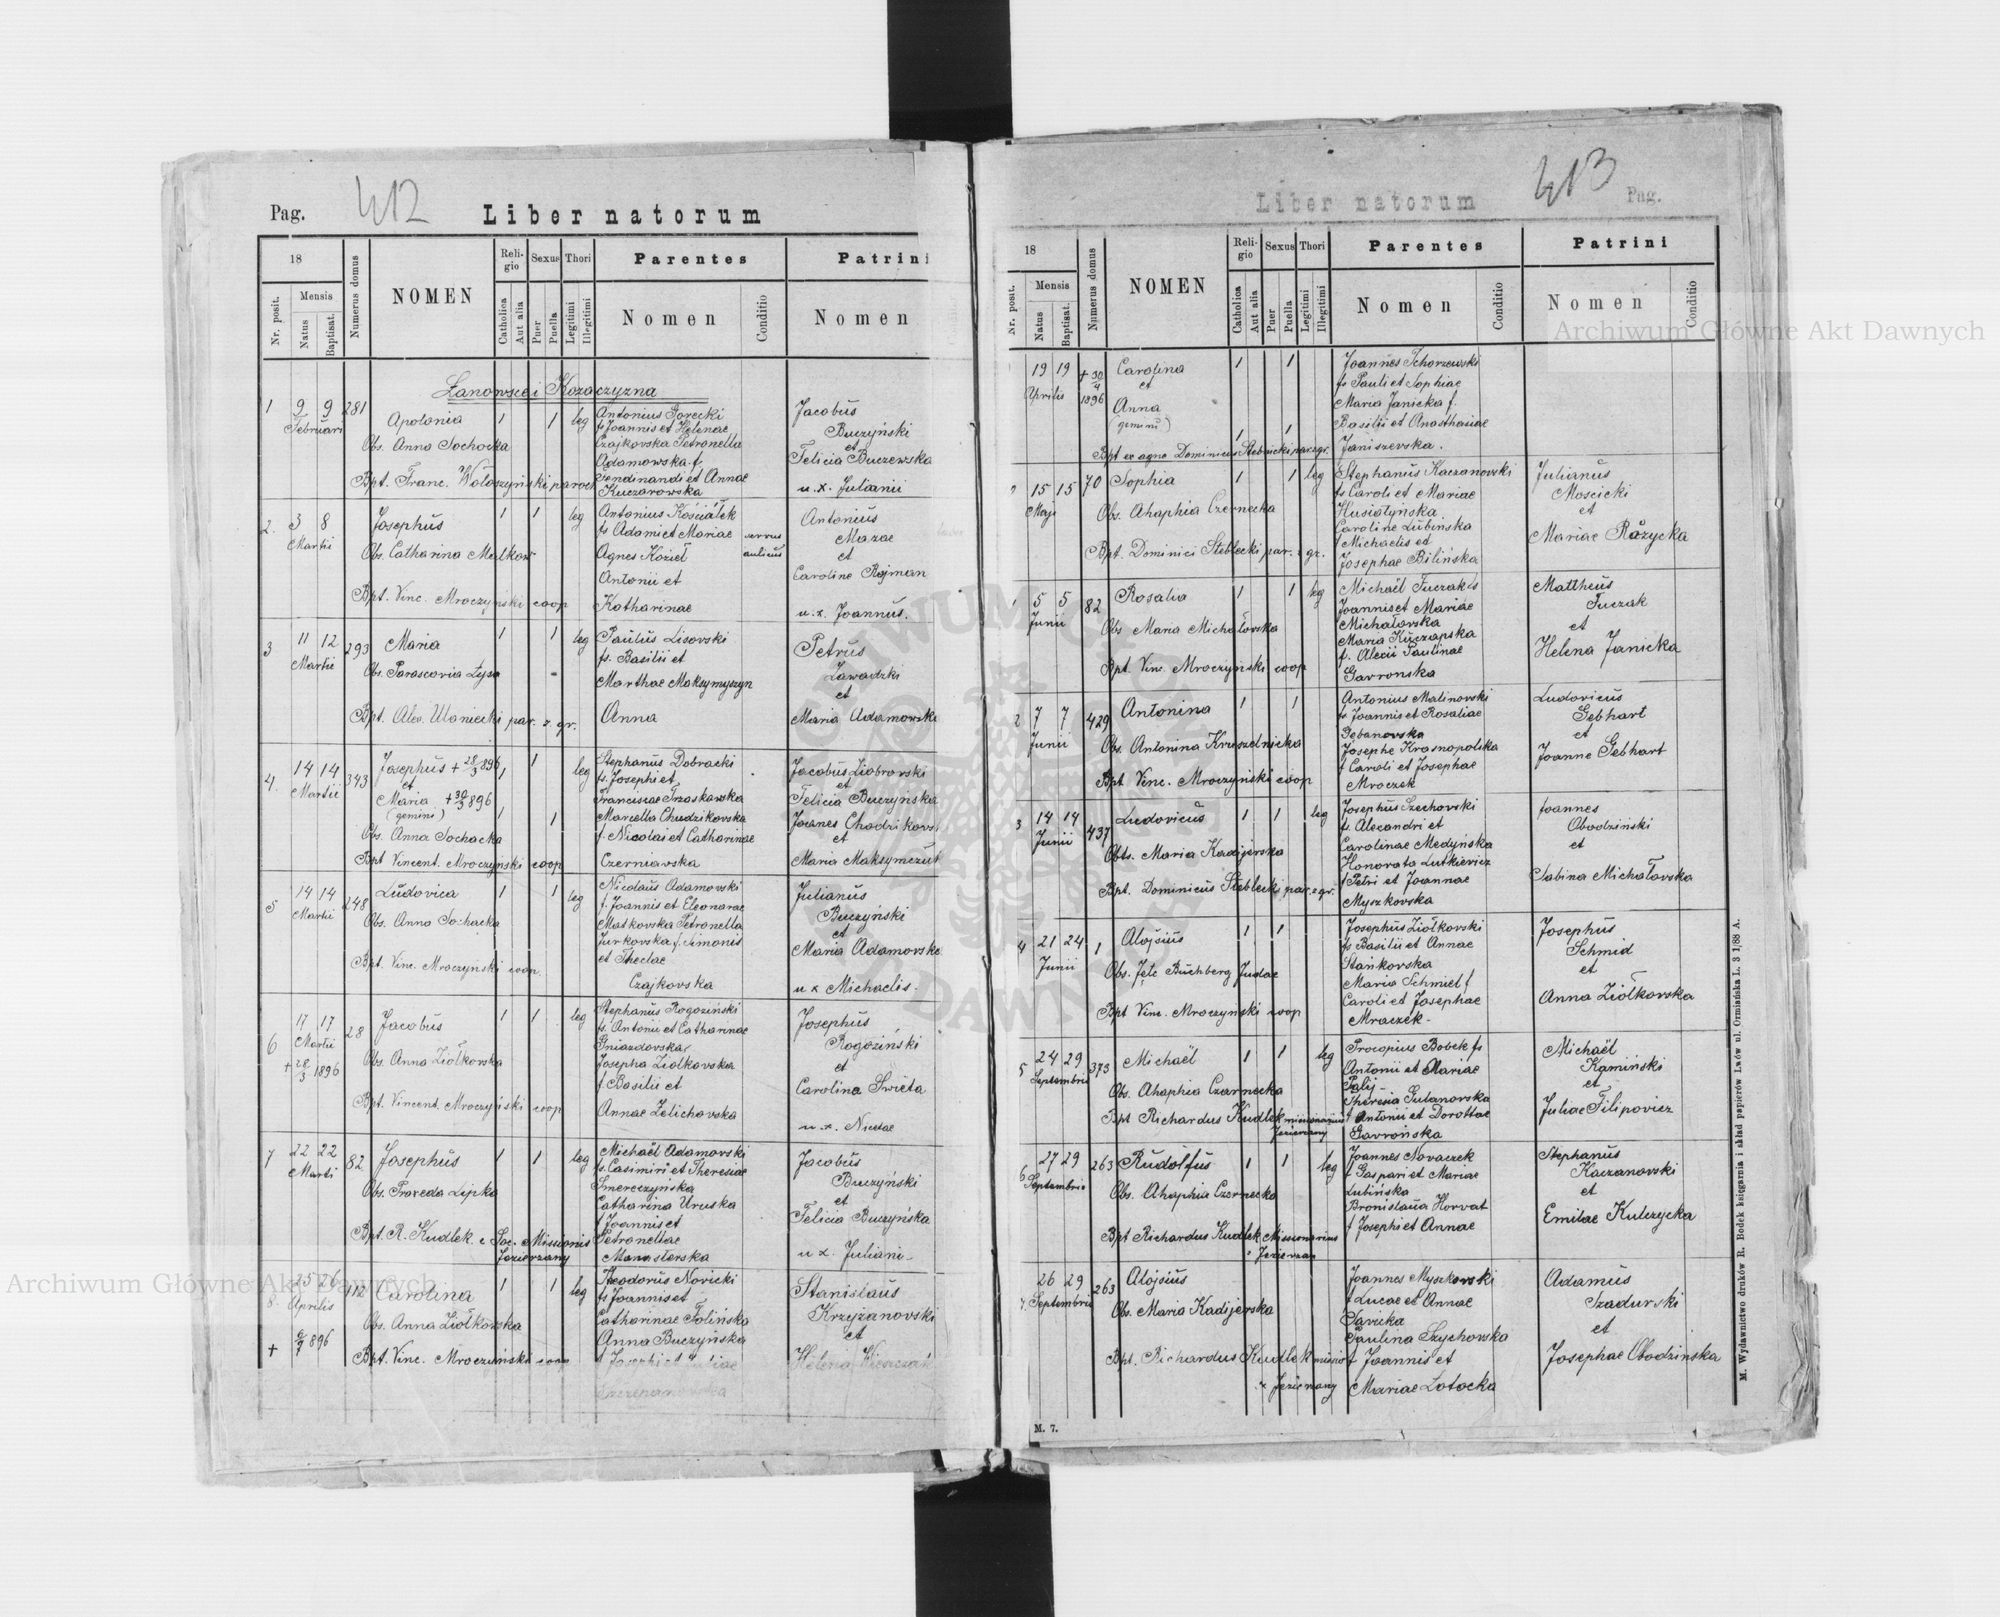 Pag. 412 Liber natorum
18
Nr. posit.
Mensis
Natus
Baptisat.
Numerus domus
NOMEN
Religio
Catholica
Aut alia
Sexus
Puer
Puella
Thori
Legitimi
Illegitimi
Parentes
Nomen
Conditio
Patrini
Nomen
Łanowce i Kozaczyzna
1 9 9 Februari 281
Apolonia 1 1 leg
Obs. Anna Sochacka
Bpt. Franc. Wołoszyński paroch
Antonius Gorecki
fs Joannis et Helenae
Czajkovska Petronella
Adamowska f.
Ferdinandi et Annae
Kuczarowska
Jacobus
Buczyński
et
Felicia Buczewska
u. x. Julianii
2. 3 8 Martii
Josephus 1 1 leg
Obs. Catharina Malkow
Bpt. Vinc. Mroczyński coop
Antonius Kościałek
fs Adami et Mariae
Agnes Kozieł
Antonii et
Katharinae
Antonius
Mazae
et
Caroline Rajman
u. x. Joannus.
3 11 12 Martii 293
Maria 1 1 leg
Obs. Parascovia Łysa
Bpt. Alex. Ulaniecki par. r. gr.
Paulus Lisovski
fs. Basilii et
Marthae Maksymyszyn
Anna
Petrus
Zawadzki
et
Maria Adamowska
4. 14 14 Martii 343
Josephus + 28/3 896 1 1 leg
et
Maria + 30/3 896 1 1
(gemini)
Obs. Anna Sochacka
Bpt Vincent. Mroczyński coop
Stephanus Dobracki
fs. Josephi et
Franciscae Trzaskawska
Marcella Chudzikovska
f. Nicolai et Catharinae
Czerniavska
Jacobus Ziobrovski
et
Felicia Buczyńska
Joanes Chodzikovs
et
Maria Maksymczuk
5 14 14 Martii 248
Ludovica 1 1 leg
Obs. Anna Sochacka
Bpt. Vinc. Mroczyński coop.
Nicolaus Adamovski
f. Joannis et Eleonorae
Maskovska Petronella
Jurkovska f. Simonis
et Theclae
Czajkovska
Julianus
Buczyński
et
Maria Adamovska
u x Michaelis.
6 17 17 Martii 28
+ 28/3 1896
Jacobus 1 1 leg
Obs. Anna Ziółkowska
Bpt. Vincent. Mroczyński coop
Stephanus Rogoziński
fs. Antonii et Catharinae
Gniazdovska
Josepha Ziółkovska
f. Basilii et
Annae Zelichovska
Josephus
Rogoziński
et
Carolina Swięta
7 22 22 Marti 82
Josephus 1 1 leg
Obs. Praxeda Lipka
Bpt. R. Kudlek e Soc. Missionis
Jezierzany
Michaël Adamovski
fs. Casimiri et Theresiae
Smereczyńska
Catharina Uruska
f Joannis et
Petronellae
Manasterska
Jacobus
Buczyński
et
Felicia Buczyńska
u x. Juliani
8 25 26 Aprilis 112
+ 6/7 896
Carolina 1 1 leg
Obs. Anna Ziółkowska
Bpt. Vinc. Mroczyński coop
Theodorus Novicki
fs Joannis et
Catharinae Tolińska
Anna Buczyńska
Stanislaus
Krzyżanovski
et
Helena
Liber natorum 413 Pag.
18
Nr. posit.
Mensis
Natus
Baptisat.
Numerus domus
NOMEN
Religio
Catholica
Aut alia
Sexus
Puer
Puella
Thori
Legitimi
Illegitimi
Parentes
Nomen
Conditio
Patrini
Nomen
Conditio
19 19 Aprilis + 30/4 1896
Carolina 1 1
et
Anna
(gemini) 1 1
Bpt ex aqua Dominicus Stebnicki par. r gr.
Joannes Schorzewski
fs Pauli et Sophiae
Maria Janicka f.
Basilii et Anasthasiae
Janiszevska.
15 15 Maji 70
Sophia 1 1 leg
Obs. Ahaphia Czernecka
Bpt. Dominici Steblecki par. r gr.
Stephanus Kaczanovski
fs Caroli et Mariae
Husiatyńska
Caroline Lubińska
f Michaelis et
Josephae Bilińska
Julianus
Moscicki
et
Mariae Różycka
5 5 Junii 82
Rosalia 1 1 leg
Obs. Maria Michałovska
Bpt. Vinc. Mroczyński coop
Michaël Tuczak fs
Joannis et Mariae
Michałovska
Maria Kuczapska
f. Alexii Paulinae
Gavronska
Mattheus
Tuczak
et
Helena Janicka
2 7 7 Junii 429
Antonina 1 1
Obs. Antonina Kruszelnicka
Bpt. Vinc. Mroczyński coop
Antonius Malinovski
fs Joannis et Rosaliae
Gębanovska
Josephe Krasnopolska
f Caroli et Josephae
Mroczek
Ludovicus
Gebhart
et
Joanne Gebhart
3 14 14 Junii 437
Ludovicus 1 1 leg
Obts. Maria Kadijerska
Bpt. Dominicus Steblecki par. r gr.
Josephus Szechovski
fs. Alexandri et
Carolinae Medyńska
Honorata Lutkievicz
f Petri et Joannae
Myszkovska
Joannes
Obodziński
et
Sabina Michałovska
4 21 24 Junii 1
Alojsius 1 1
Obs. Jete Buchberg Judae
Bpt Vinc. Mroczyński coop
Josephus Ziółkovski
fs Basilii et Annae
Stańkovska
Maria Schmiel f
Caroli et Josephae
Mraczek -
Josephus
Schmid
et
Anna Ziółkovska
5 24 29 Septembris 373
Michaël 1 1 leg
Obs. Ahaphia Czarnecka
Bpt Richardus Kudlek missionarius
Jezierzany
Procopius Bobek fs
Antonii et Mariae
Palij -
Theresia Sulanovska
f Antonii et Dorottae
Gavrońska
Michaël
Kamiński
et
Juliae Filipovicz
6 27 29 Septembris 263
Rudolfus 1 1 leg
Obs. Ahaphia Czernecka
Bpt Richardus Kudlek Missionarius
Jezierzan
Joannes Novaczek
f Gaspari et Mariae
Lubińska
Bronislaua Horvat
f Josephi et Annae
Stephanus
Kaczanovski
et
Emilae Kulczycka
7. 26 29 Septembris 263
Alojsius
Obs. Maria Kadijerska
Bpt. Richardus Kudlek missio
x Jezierzany
Joannes Myszkovski
f Lucae et Annae
Savicka
Paulina Szychovska
f Joannis et
Mariae Lotocka
Adamus
Szadurski
et
Josephae Obodzinska
M. 7.
M. Wydawnictwo druków R. Bodek księgarnia i skład papierów Lwów ul. Ormiańska L. 3 1/88 A.
Archiwum Główne Akt Dawnych
Archiwum Główne Akt Dawnych